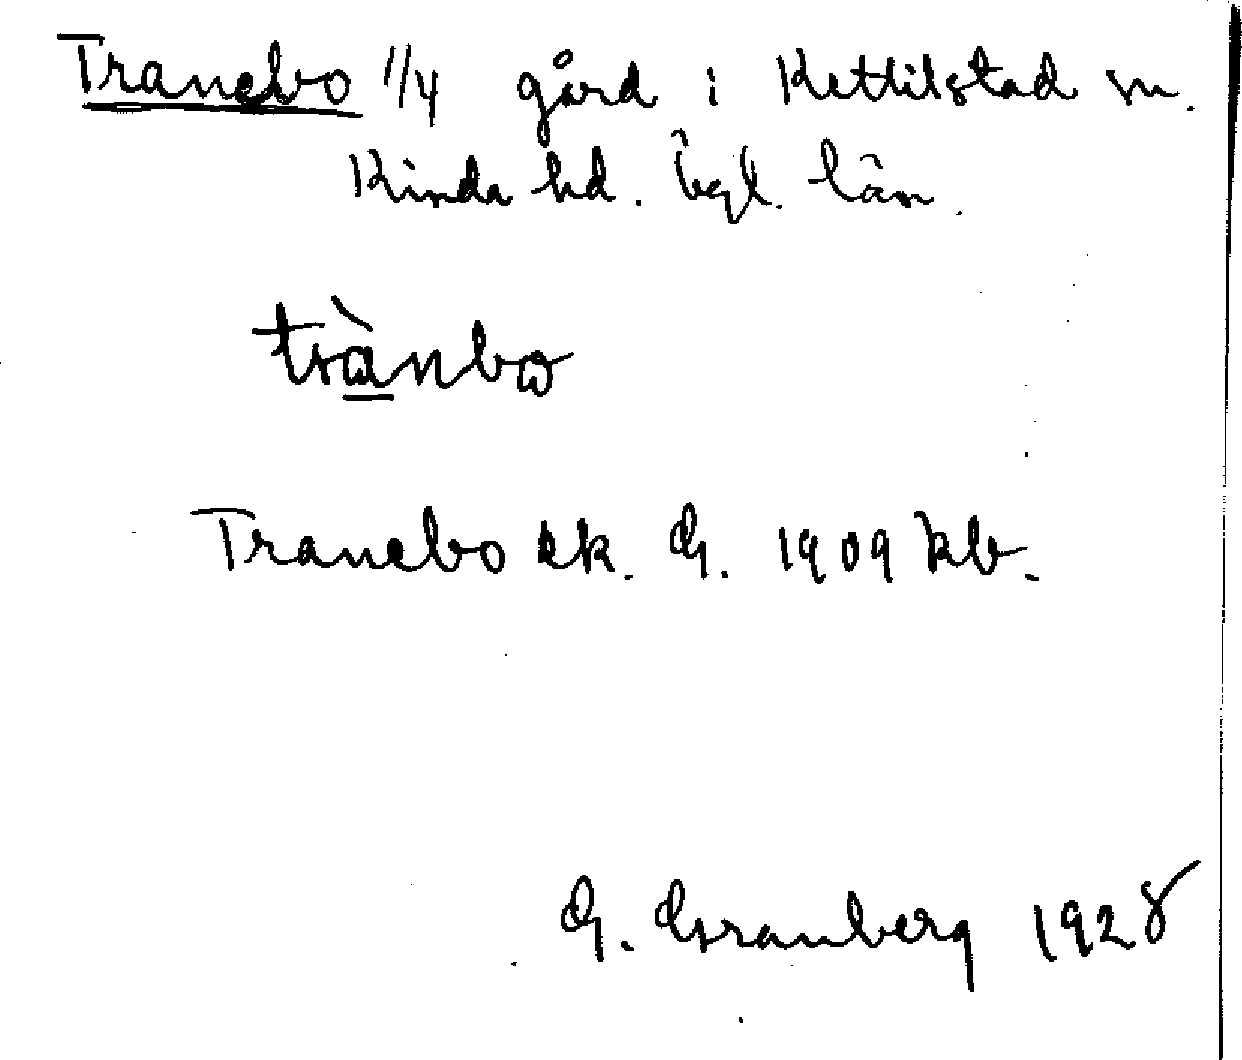 Tranebo 1/4 gård i Kettilstad sn.
Kinda hd. Ögl. län.
trànbo
Tranebo ek. G. 1909 kb.
G. Granberg 1928